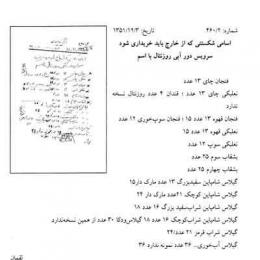 شماره: ۴۶۰/۲
تاریخ: ۱۳۵۱/۱۲/۳
اسامی شکستنی که از خارج باید خریداری شود
سرویس دور آبی روزنتال با اسم
فنجان چای ۱۳ عدد
نعلبکی چای ۱۳ عدد ؛ قندان ۴ عدد روزنتال نسخه ندارد
فنجان قهوه ۱۳ عدد ۱۵ ؛ فنجان سوپ‌خوری ۱۲ عدد
نعلبکی سوپ ۱۲ عدد
بشقاب سوم ۲۵ عدد
بشقاب چهارم ۲۵ عدد
گیلاس شامپاین سفیدبزرگ ۱۳ عدد مارک دار۱۵
گیلاس شامپاین کوچک ۲۱عدد مارک دار ۲۴
گیلاس شامپاین شراب‌سفید بزرگ ۱۶ عدد ۱۸
گیلاس شامپاین شراب‌کوچک ۱۶ عدد ۱۸ گیلاس‌ودکا ۳۰ عدد از همین نسخه‌ندارد
گیلاس شراب قرمز ۲۱ عدد/۲۴
گیلاس آب‌خوری... ۳۶ عدد نمونه ندارد ۳۶
لقمان